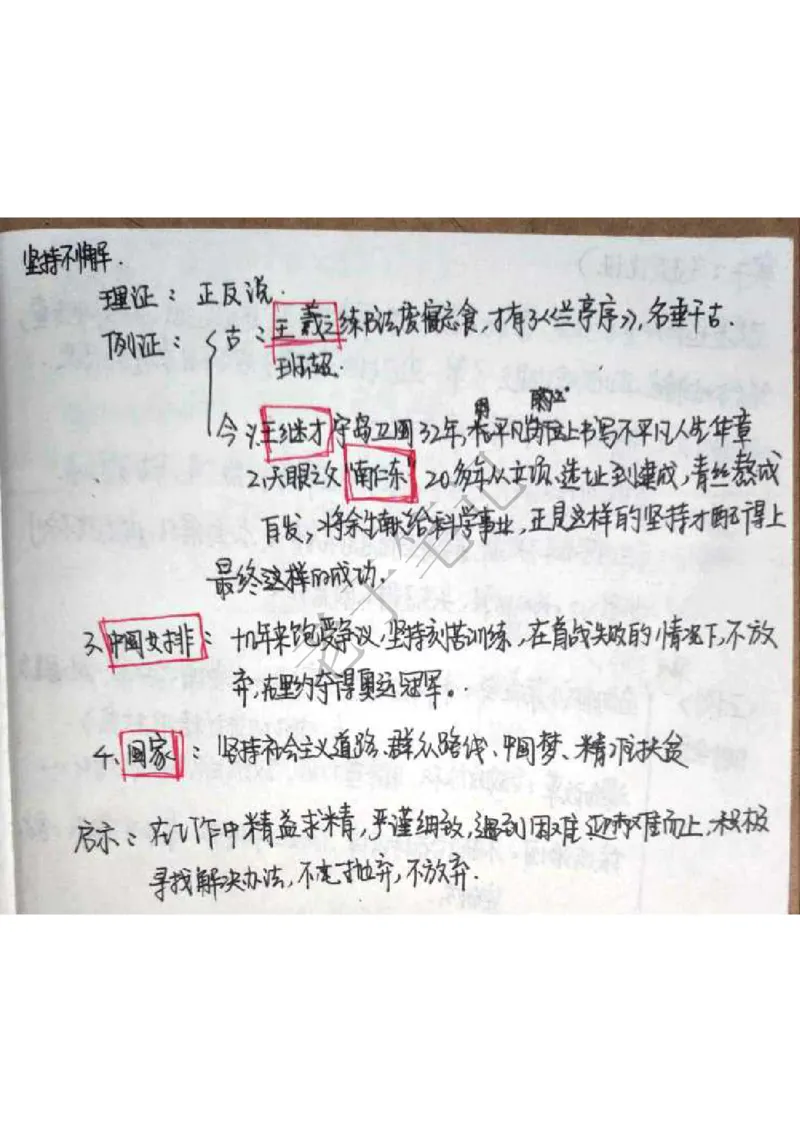 坚持不懈.
理证： 正反说.
例证： 古：王羲之练书法废寝忘食，才有了《兰亭序》，名垂千古.
班超.
今 1、王继才守岛卫国32年，平凡岗位上书写不平凡人生华章
2、天眼之父"南仁东" 20多年从立项、选址到建成，青丝熬成
白发，将余生献给科学事业，正是这样的坚持才配得上
最终这样的成功.
3、中国女排： 十几年来饱受争议，坚持刻苦训练，在首战失败的情况下，不放
弃，在里约夺得奥运冠军。
4、国家： 坚持社会主义道路、群众路线、中国梦、精准扶贫
启示：在工作中精益求精，严谨细致，遇到困难，迎难而上，积极
寻找解决办法，不抛弃，不放弃.